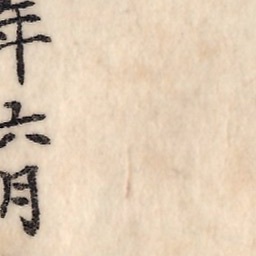 年六月